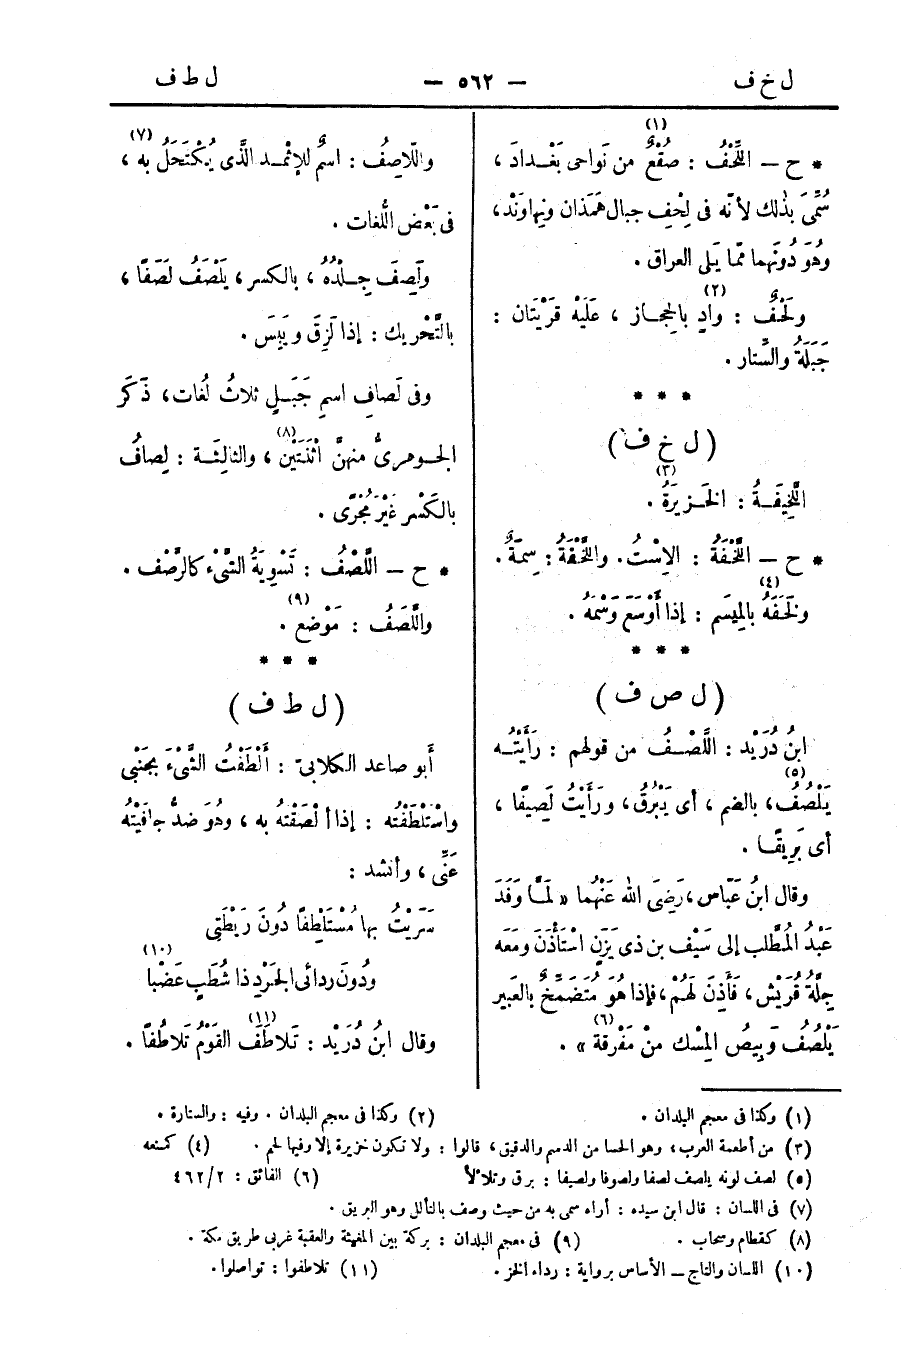 ل خ ف — ٥٦٢ — ل ط ف
(١)
* ح — اللَّحْفُ : صُقْعٌ من نَواحى بَغْـدادَ ،
سُمِّىَ بذٰلك لأنّه فى لِحْفِ جبال هَمَذان ونِهاوَنْد،
وهُوَ دُونَهما ممّا يَلى العراق .
(٢)
ولَحْفٌ : وادٍ بالحِجـاز ، عَلَيْه قَرْيَتان :
جَبَلَةُ والسِّتار .
* * *
( ل خ ف )
(٣)
اللَّخِيفَـةُ : الخَـزِيرَةُ .
* ح — اللَّخْفَةُ : الاِسْتُ. واللَّخْفَةُ : سِمَةٌ .
(٤)
ولَخَفَهُ بالمِيسَم : إذا أَوْسَعَ وَسْمَهُ .
* * *
( ل ص ف )
ابنُ دُرَيْد : اللَّصْـفُ من قولهم : رَأَيْتُـه
(٥)
يَلْصُفُ، بالضم ، أى يَبْرُقُ، ورَأَيْتُ لَصِيفًا ،
أى بَرِيقًـا .
وقال ابنُ عَبّاس، رَضِىَ الله عَنْهُما « لَمَّـا وَفَدَ
عَبْدُ المُطَّلب إلى سَيْف بن ذى يَزَنٍ اسْتَأْذَنَ ومَعَه
جِلَّةُ قُرَيْش، فَأَذِنَ لَهُمْ، فإذا هُوَ مُتَضَمِّخٌ بالعَبير
(٦)
يَلْصُفُ وَبِيصُ المِسْك منْ مَفْرقة » .
(٧)
واللّاصِفُ : اسمٌ للإثْمـد الَّذى يُكْتَحَلُ به ،
فى بَعْض اللُّغات .
ولَصِفَ جِـلْدُهُ ، بالكسر ، يَلْصَفُ لَصَفًا ،
بالتَّحْريك : إذا لَزِقَ ويَبِسَ .
وفى لَصافِ اسمِ جَبَـلٍ ثلاثُ لُغات، ذَكَرَ
(٨)
الجـوهرىُّ منهنَّ اثْنَتَيْن ، والثالِثَـة : لِصافُ
بالكَسْر غَيْرَ مُجْرًى .
* ح — اللَّصْفُ : تَسْوِيَةُ الشَّىْء كالرَّصْف .
(٩)
واللَّصَفُ : مَوْضع .
* * *
( ل ط ف )
أَبو صاعد الكلابىّ : أَلْطَفْتُ الشَّىْءَ بِجَنْبِى
واسْتَلْطَفْتُه : إذا أَلْصَقْتَهُ به ، وهُوَ ضدُّ جافَيْتُه
عَنِّى ، وأنشد :
سَرَيْتُ بها مُسْتَلْطِفًا دُونَ رَيْطَتِى
(١٠)
ودُونَ ردائى الجَرْدِ ذا شُطَبٍ عَضْبا
(١١)
وقال ابنُ دُرَيْد : تَلاطَفَ القَوْمُ تَلاطُفًا .
(١) وكذا فى معجم البلدان . (٢) وكذا فى معجم البلدان . وفيه : والستارة .
(٣) من أطعمة العرب، وهو الحسا من الدسم والدقيق، قالوا : ولا تكون خزيرة إلا وفيها لحم . (٤) كمنعه
(٥) لصف لونه يلصف لصفا ولصوفا ولصيفا : برق وتلالأ (٦) الفائق : ٤٦٢/٢
(٧) فى اللسان : قال ابن سيده : أراه سمى به من حيث وصف بالتألل وهو البريق .
(٨) كقطام وسحاب . (٩) فى معجم البلدان : بركة بين المغيثة والعقبة غربى طريق مكة .
(١٠) اللسان والتاج — الأساس برواية : رداء الخز . (١١) تلاطفوا : تواصلوا.